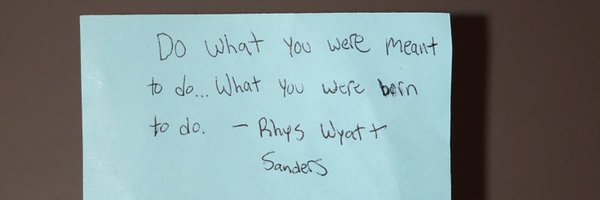 Do what you were meant
to do... What you were born
to do. - Rhys Wyatt
Sanders